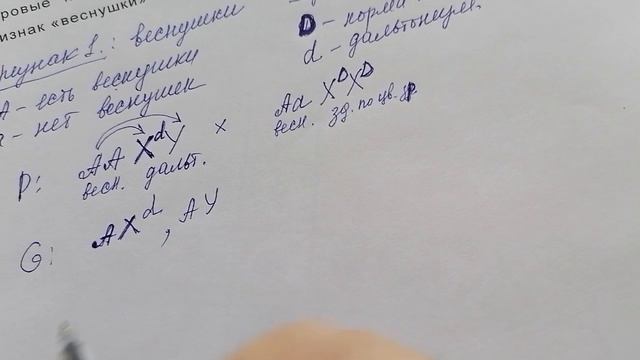 изнак «веснушки»
1.: веснушки
А - есть веснушки
- нет веснушек
D - норма
d - дальтонизм.
P: AA XᵈY х Aa XᴰXᴰ
весн. дальт. весн. зд. по цв. зр
G: AXᵈ, AY